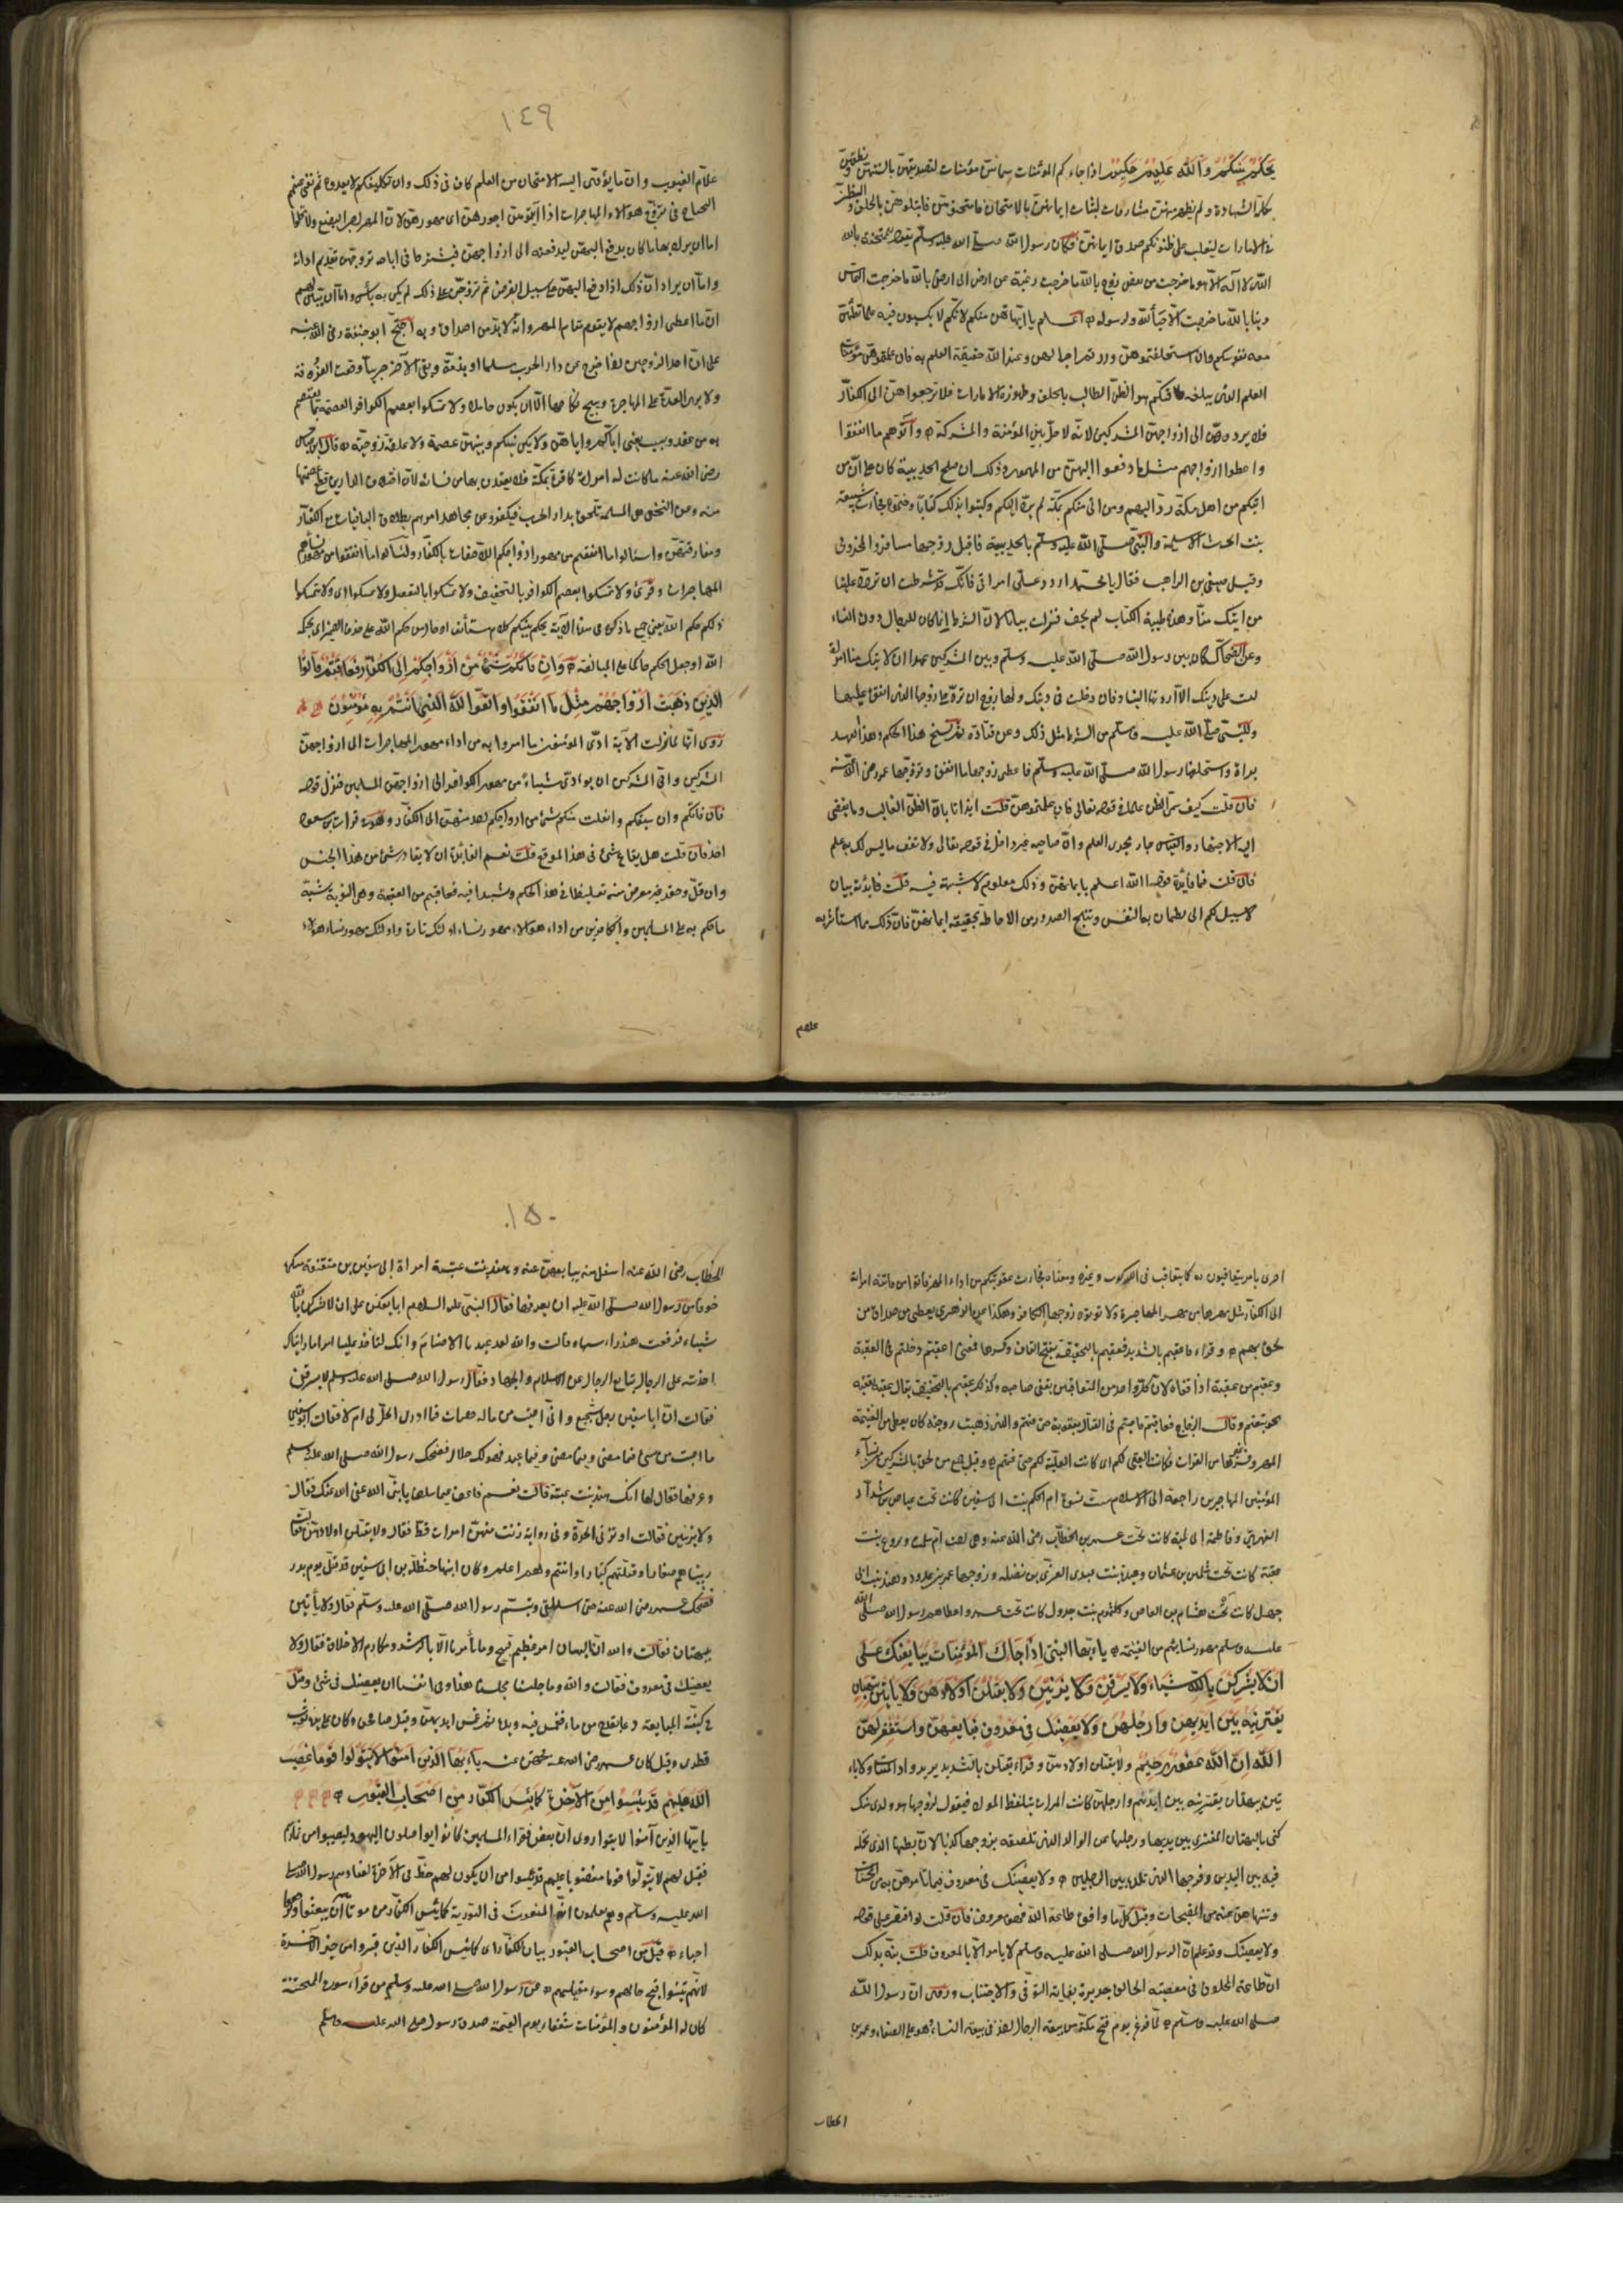 يَحكُمُ بَينَكُمْ وَاللَّه عَلِيمٌ حَكِيمٌ اذا جاءكم المؤمنات سماهن مؤمنات لتصديقهن بالسنتهن ونطقهن
بكلمة الشهادة ولم يظهر منهن
فى الامارات ليغلب على ظنونكم صدق ايمانهن فكان رسول الله صلى الله عليه وسلم يقول للممتحنة بالله
الذى لا اله الا هو ما خرجت من بغض زوج بالله ما خرجت رغبة عن ارض الى ارض بالله ما خرجت التماس
دنيا بالله ما خرجت الا حبا لله ولرسوله الله اعلم بايمانهن منكم لانكم لا تكسبون فيه علما تطمئن
معه نفوسكم وان استحلفتموهن ورزتم احوالهن وعند الله حقيقة العلم به فان علمتموهن مؤمنات
العلم الذى يبلغه طاقتكم وهو الظن الغالب بالحلف وظهور الامارات فلا ترجعوهن الى الكفار
فلا يردوهن الى ازواجهن المشركين لانه لا حل بين المؤمنة والمشرك وآتوهم ما انفقوا
واعطوا ازواجهم مثل ما دفعوا اليهن من المهور وذلك ان صلح الحديبية كان على ان من
اتيكم من اهل مكة رد اليهم ومن اتى منكم مكة لم يرد اليكم وكتبوا بذلك كتابا وختموه فجاءت سبيعة
بنت الحرث الاسلمية والنبى صلى الله عليه وسلم بالحديبية فاقبل زوجها مسافر المخزومى
وقيل صيفى بن الراهب فقال يا محمد اردد على امراتى فانك قد شرطت ان ترد علينا
من اتيك منا وهذه طينة الكتاب لم يجف فنزلت بيانا لان الشرط انما كان للرجال دون النساء
وعن الضحاك كان بين رسول الله صلى الله عليه وسلم وبين المشركين عهد ان لا تيك منا امراة
ليست على دينك الا رددتها الينا فان دخلت فى دينك ولها زوج ان ترد على زوجها الذى انفق عليها
وللنبى صلى الله عليه وسلم من الشرط مثل ذلك وعن قتادة ثم نسخ هذا الحكم وهذا العهد
براة فاستحلفها رسول الله صلى الله عليه وسلم فاعطى زوجها ما انفق وتزوجها عمر رضى الله عنه
فان قلت كيف سمى الظن علما فى قوله تعالى فان علمتموهن قلت ايذانا بان الظن الغالب وما يفضى
اليه الاجتهاد والقياس جار مجرى العلم وان صاحبه غير داخل فى قوله تعالى ولا تقف ما ليس لك به علم
فان قلت فما فايدة قوله الله اعلم بايمانهن وذلك معلوم لا شبهة فيه قلت فايدته بيان
لا سبيل لكم الى ما تطمئن به النفس ويثلج الصدور من الاحاطة بحقيقة ايمانهن فان ذلك مما استأثر به
علام
١٤٩
علام الغيوب وان ما يؤدى اليه الامتحان من العلم كاف فى ذلك وان تكليفكم لا يعدوه ثم نفى عنهم
الجناح فى تزوج هؤلاء المهاجرات اذا آتيتموهن اجورهن اى مهورهن لان المهر اجر البضع ولا يخلوا
اما ان يراد بها ما كان يدفع اليهن ليدفعنه الى ازواجهن فيشترط فى اباحة تزوجهن تقديم ادائه
واما ان يراد ان ذلك اذا دفع اليهن على سبيل القرض ثم تزوجن على ذلك لم يكن به بأس واما ان يبين لهم
ان ما اعطى ازواجهم لا يقوم مقام المهر وانه لا بد من اصداق وبه احتج ابو حنيفة رضى الله عنه
على ان احد الزوجين اذا خرج من دار الحرب مسلما او بذمة وبقى الآخر حربيا وقعت الفرقة
ولا يرى العدة على المهاجرة ويبيح نكاحها الا ان يكون حاملا ولا تمسكوا بعصم الكوافر العصمة ما يعتصم
به من عقد وسبب يعنى اياكم واياهن ولا يكن بينكم وبينهن عصمة ولا علقة زوجية قال ابن عباس
رضى الله عنه ما كانت له امراة كافرة بمكة فلا يعتدن بها من نسائه لان اختلاف الدارين قطع عصمتها
منه وعن النخعى هى المسلمة تلحق بدار الحرب فيكفر وعن مجاهد امرهم بطلاق الباقيات مع الكفار
ومفارقتهن واسئلوا ما انفقتم من مهور ازواجكم اللاحقات بالكفار وليسألوا ما انفقوا من مهور نسائهم
المهاجرات وقرئ ولا تمسكوا بعصم الكوافر بالتخفيف ولا تمسكوا بالتثقيل ولا تمسكوا اى ولا تتمسكوا
ذلكم حكم الله يعنى جميع ما ذكر فى هذا الآية يحكم بينكم كلام مستأنف او حال من حكم الله على حذف الضمير اى يحكمه
الله او جعل الحكم حاكما على المبالغة وَاِنْ فَاتَكُمْ شَىْءٌ مِنْ اَزْوَاجِكُمْ اِلَى الكُفَّارِ فَعَاقَبْتُمْ فَآتُوا
الَّذِينَ ذَهَبَتْ اَزْوَاجُهُمْ مِثْلَ مَا اَنْفَقُوا وَاتَّقُوا اللَّهَ الَّذِى اَنْتُمْ بِهِ مُؤْمِنُونَ
روى انها لما نزلت الآية ادى المؤمنون ما امروا به من اداء مهور المهاجرات الى ازواجهن
المشركين وابى المشركين ان يودى شيئا من مهور الكوافر الى ازواجهن المسلمين فنزل قوله
فان فاتكم وان سبقكم وانفلت منكم شئ من ازواجكم احد منهن الى الكفار وهو فى قراءة ابن مسعود
احد فان قلت هل يقاع شئ فى هذا الموقع قلت نعم الفائدة ان لا يغادر شئ من هذا الجنس
وان قل وحقر غير معوض منه تغليظا فى هذا الحكم وتشديدا فيه فعاقبتم من العقبة وهى النوبة شبه
ما حكم به على المسلمين والكافرين من اداء هؤلاء مهور نساء اولئك تارة واولئك مهور نساء هؤلاء
اخرى بامر يتعاقبون كما يتعاقب فى الركوب وغيره ومعناه فجاءت عقوبتكم من اداء المهر فاتوا من فاتته امراته
الى الكفار مثل مهرها من مهر المهاجرة ولا توتوه زوجها الكافر وهكذا عن الزهرى يعطى من صداق من
لحق بهم وقرئ فاعقبتم فعقبتم بالتشديد فعقبتم بالتخفيف بفتح القاف وكسرها فمعنى اعقبتم دخلتم فى العقبة
وعقبتم من عقبه اذا قفاه لان كل واحد من المتعاقبين يقفى صاحبه وكذلك عقبتم بالتخفيف يقال عقبه يعقبه
نحو تبعتم وقال الزجاج فعاقبتم فاصبتم فى القتال بعقوبة حتى غنمتم والذى ذهبت زوجته كان يعطى من الغنيمة
المهر وفسر غيرها من القراءت فكانت العقبى لكم اى كانت الغلبة لكم حتى غنمتم وقيل جميع من لحق بالمشركين من نساء
المؤمنين المهاجرين راجعة الى الاسلام ست نسوة ام الحكم بنت ابى سفين كانت تحت عياض بن شداد
الفهرى وفاطمة كانت تحت عمر بن الخطاب رضى الله عنه وهى اخت ام سلمة وبروع بنت
عقبة كانت تحت شماس بن عثمان وعبدة بنت عبد العزى بن نضلة وزوجها عمرو بن عبدود وهند بنت ابى
جهل كانت تحت هشام بن العاص وكلثوم بنت جرول كانت تحت عمر واعطاهم رسول الله صلى الله
عليه وسلم مهور نسائهم من الغنيمة يا ايها النبى اِذَا جَاءَكَ المُؤْمِنَاتُ يُبَايِعْنَكَ عَلَى
اَنْ لَا يُشْرِكْنَ بِاللَّهِ شَيْئًا وَلَا يَسْرِقْنَ وَلَا يَزْنِينَ وَلَا يَقْتُلْنَ اَوْلَادَهُنَّ وَلَا يَأْتِينَ بِبُهْتَانٍ
يَفْتَرِينَهُ بَيْنَ اَيْدِيهِنَّ وَاَرْجُلِهِنَّ وَلَا يَعْصِينَكَ فِى مَعْرُوفٍ فَبَايِعْهُنَّ وَاسْتَغْفِرْ لَهُنَّ
اللَّهَ اِنَّ اللَّهَ غَفُورٌ رَحِيمٌ ولا يقتلن اولادهن وقرئ يقتلن بالتشديد يريد واد البنات ولا يا
تين ببهتان يفترينه بين ايديهن وارجلهن كانت المراة تلتقط المولود فيقول لزوجها هو ولدى منك
كنى بالبهتان المفترى بين يديها ورجليها عن الوالد الذى تلصقه بزوجها كذبا لان بطنها الذى تحمله
فيه بين اليدين وفرجها الذى تلده بين الرجلين ولا يعصينك فى معروف فيما تامرهن به من الحسنات
وتنهاهن عنه من المقبحات وقيل كل ما وافق طاعة الله فهو معروف فان قلت لو اقتصر على قوله
ولا يعصينك وقد علم ان الرسول الله صلى الله عليه وسلم لا يامر الا بالمعروف قلت نبه بذلك
ان طاعة المخلوق فى معصية الخالق جديرة بغاية التوقى والاجتناب وروى ان رسول الله
صلى الله عليه وسلم لما فرغ يوم فتح مكة من بيعة الرجال اخذ فى بيعة النساء وهو على الصفا وعمر بن
الخطاب
١٥٠
الخطاب رضى الله عنه اسفل منه يبايعهن عنه وهند بنت عتبة امراة ابى سفين بن متقنعة متنكرة
خوفا من رسول الله صلى الله عليه ان يعرفها فقال النبى عليه السلام ابايعكن على ان لا تشركن بالله
شيئا فرفعت هند راسها وقالت والله لقد عبدنا الاصنام وانك لتاخذ علينا امرا ما رايناك
اخذته على الرجال تبايع الرجال على الاسلام والجهاد فقال رسول الله صلى الله عليه وسلم لا يسرقن
فقالت ان ابا سفين رجل شحيح وانى اصبت من ماله هنات فما ادرى ايحل لى ام لا فقال ابو سفين
ما اصبت من شئ فيما مضى وفيما غبر فهو لك حلال فضحك رسول الله صلى الله عليه وسلم
وعرفها فقال لها انك هند بنت عتبة قالت نعم فاعف عما سلف يا نبى الله عفى الله عنك فقال
ولا يزنين فقالت او تزنى الحرة وفى رواية زنت منهن امراة قط فقال ولا يقتلن اولادهن فقالت
ربيناهم صغارا وقتلتهم كبارا وانتم وهم اعلم وكان ابنها حنظلة بن ابى سفين قد قتل يوم بدر
فضحك عمر رضى الله عنه حتى استلقى وتبسم رسول الله صلى الله عليه وسلم فقال ولا يأتين
ببهتان فقالت والله ان البهتان امر عظيم قبيح وما تأمرنا الا بالرشد ومكارم الاخلاق فقال ولا
يعصينك فى معروف فقالت والله وما جلسنا مجلسنا هذا وفى انفسنا ان نعصينك فى شئ وقيل
فى كيفية المبايعة دعا بقدح من ماء فغمس فيه ويده ثم غمس ايديهن وقيل صافحهن وكان على يده ثوب
قطرى وقيل كان عمر رضى الله عنه يصافحهن عنه يا ايها الَّذِينَ اَمَنُوا لَا تَتَوَلَّوا قَوْمًا غَضِبَ
اللَّهُ عَلَيْهِمْ قَدْ يَئِسُوا مِنَ الْآخِرَةِ كَمَا يَئِسَ الكُفَّارُ مِنْ اَصْحَابِ القُبُورِ
يا ايها الذين آمنوا لا تتولوا روى ان بعض فقراء المسلمين كانوا يواصلون اليهود ليصيبوا من ثمارهم
فقيل لهم لا تتولوا قوما مغضوبا عليهم قد يئسوا من ان يكون لهم حظ فى الآخرة لعنادهم رسول الله صلى
الله عليه وسلم وهم يعلمون انه المنعوت فى التورية كما يئس الكفار من موتاهم ان يبعثوا ويرجعوا
احياء وقيل من اصحاب القبور بيان للكفار اى كما يئس الكفار الذين قبروا من خير الآخرة
لانهم تبينوا قبح حالهم وسوء منقلبهم عن رسول الله صلى الله عليه وسلم من قراء سورة الممتحنة
كان له المؤمنون والمؤمنات شفعاء يوم القيمة صدق رسول صلى الله عليه وسلم